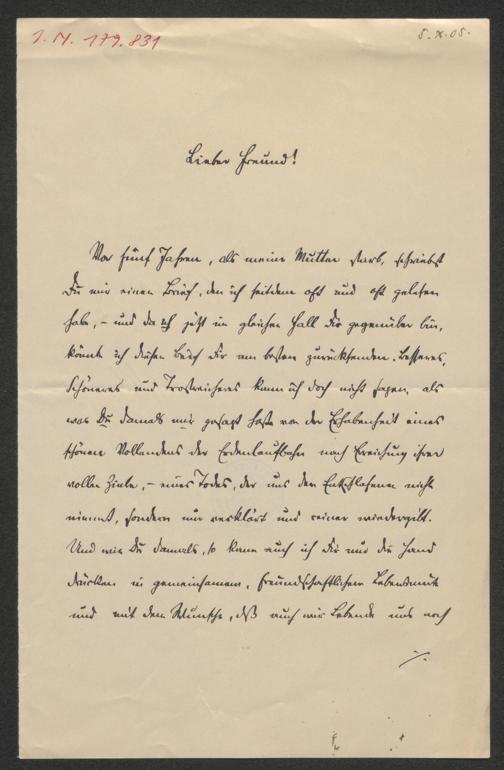 I. N. 179.831
5. X. 05.
Lieber Freund!
Vor fünf Jahren, als meine Mutter starb, schriebst
Du mir einen Brief, den ich seitdem oft und oft gelesen
habe, – und da ich jetzt im gleichen Fall Dir gegenüber bin,
könnte ich diesen Brief Dir am besten zurücksenden. Besseres,
Schöneres und Trostreicheres kann ich doch nicht sagen, als
was Du damals mir gesagt hast von der Erhabenheit eines
schönen Vollendens der Erdenlaufbahn nach Erreichung ihrer
vollen Ziele, – eines Todes, der uns den Entschlafenen nicht
nimmt, sondern nur verklärt und reiner wiedergibt.
Und wie Du damals, so kann auch ich Dir nur die Hand
drücken in gemeinsamem, freundschaftlichem Lebensmute
und mit dem Wunsche, daß auch wir Lebende uns noch
./.